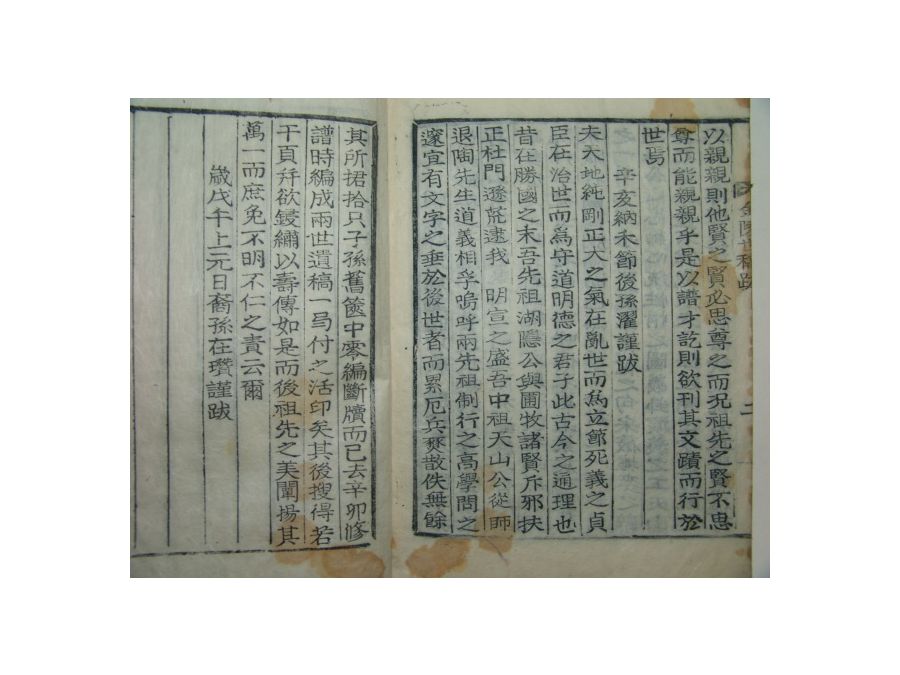 金陵世稿跋
二
以親親則他賢之賢必思尊之而況祖先之賢不思
尊而能親親乎是以譜才訖則欲刊其文蹟而行於
世焉
辛亥納禾節後孫濯謹跋
夫天地純剛正大之氣在亂世而爲立節死義之貞
臣在治世而爲守道明德之君子此古今之通理也
昔在勝國之末吾先祖湖隱公與圃牧諸賢斥邪扶
正杜門遯荒逮我 明宣之盛吾中祖天山公從師
退陶先生道義相孚嗚呼兩先祖制行之高學問之
邃宜有文字之垂於後世者而累厄兵燹散佚無餘
其所捃拾只子孫舊篋中零編斷牘而已去辛卯修
譜時編成兩世遺稿一局付之活印矣其後搜得若
干頁幷欲鋟繡以壽傳如是而後祖先之美闡揚其
萬一而庶免不明不仁之責云爾
歲戊午上元日裔孫在瓚謹跋